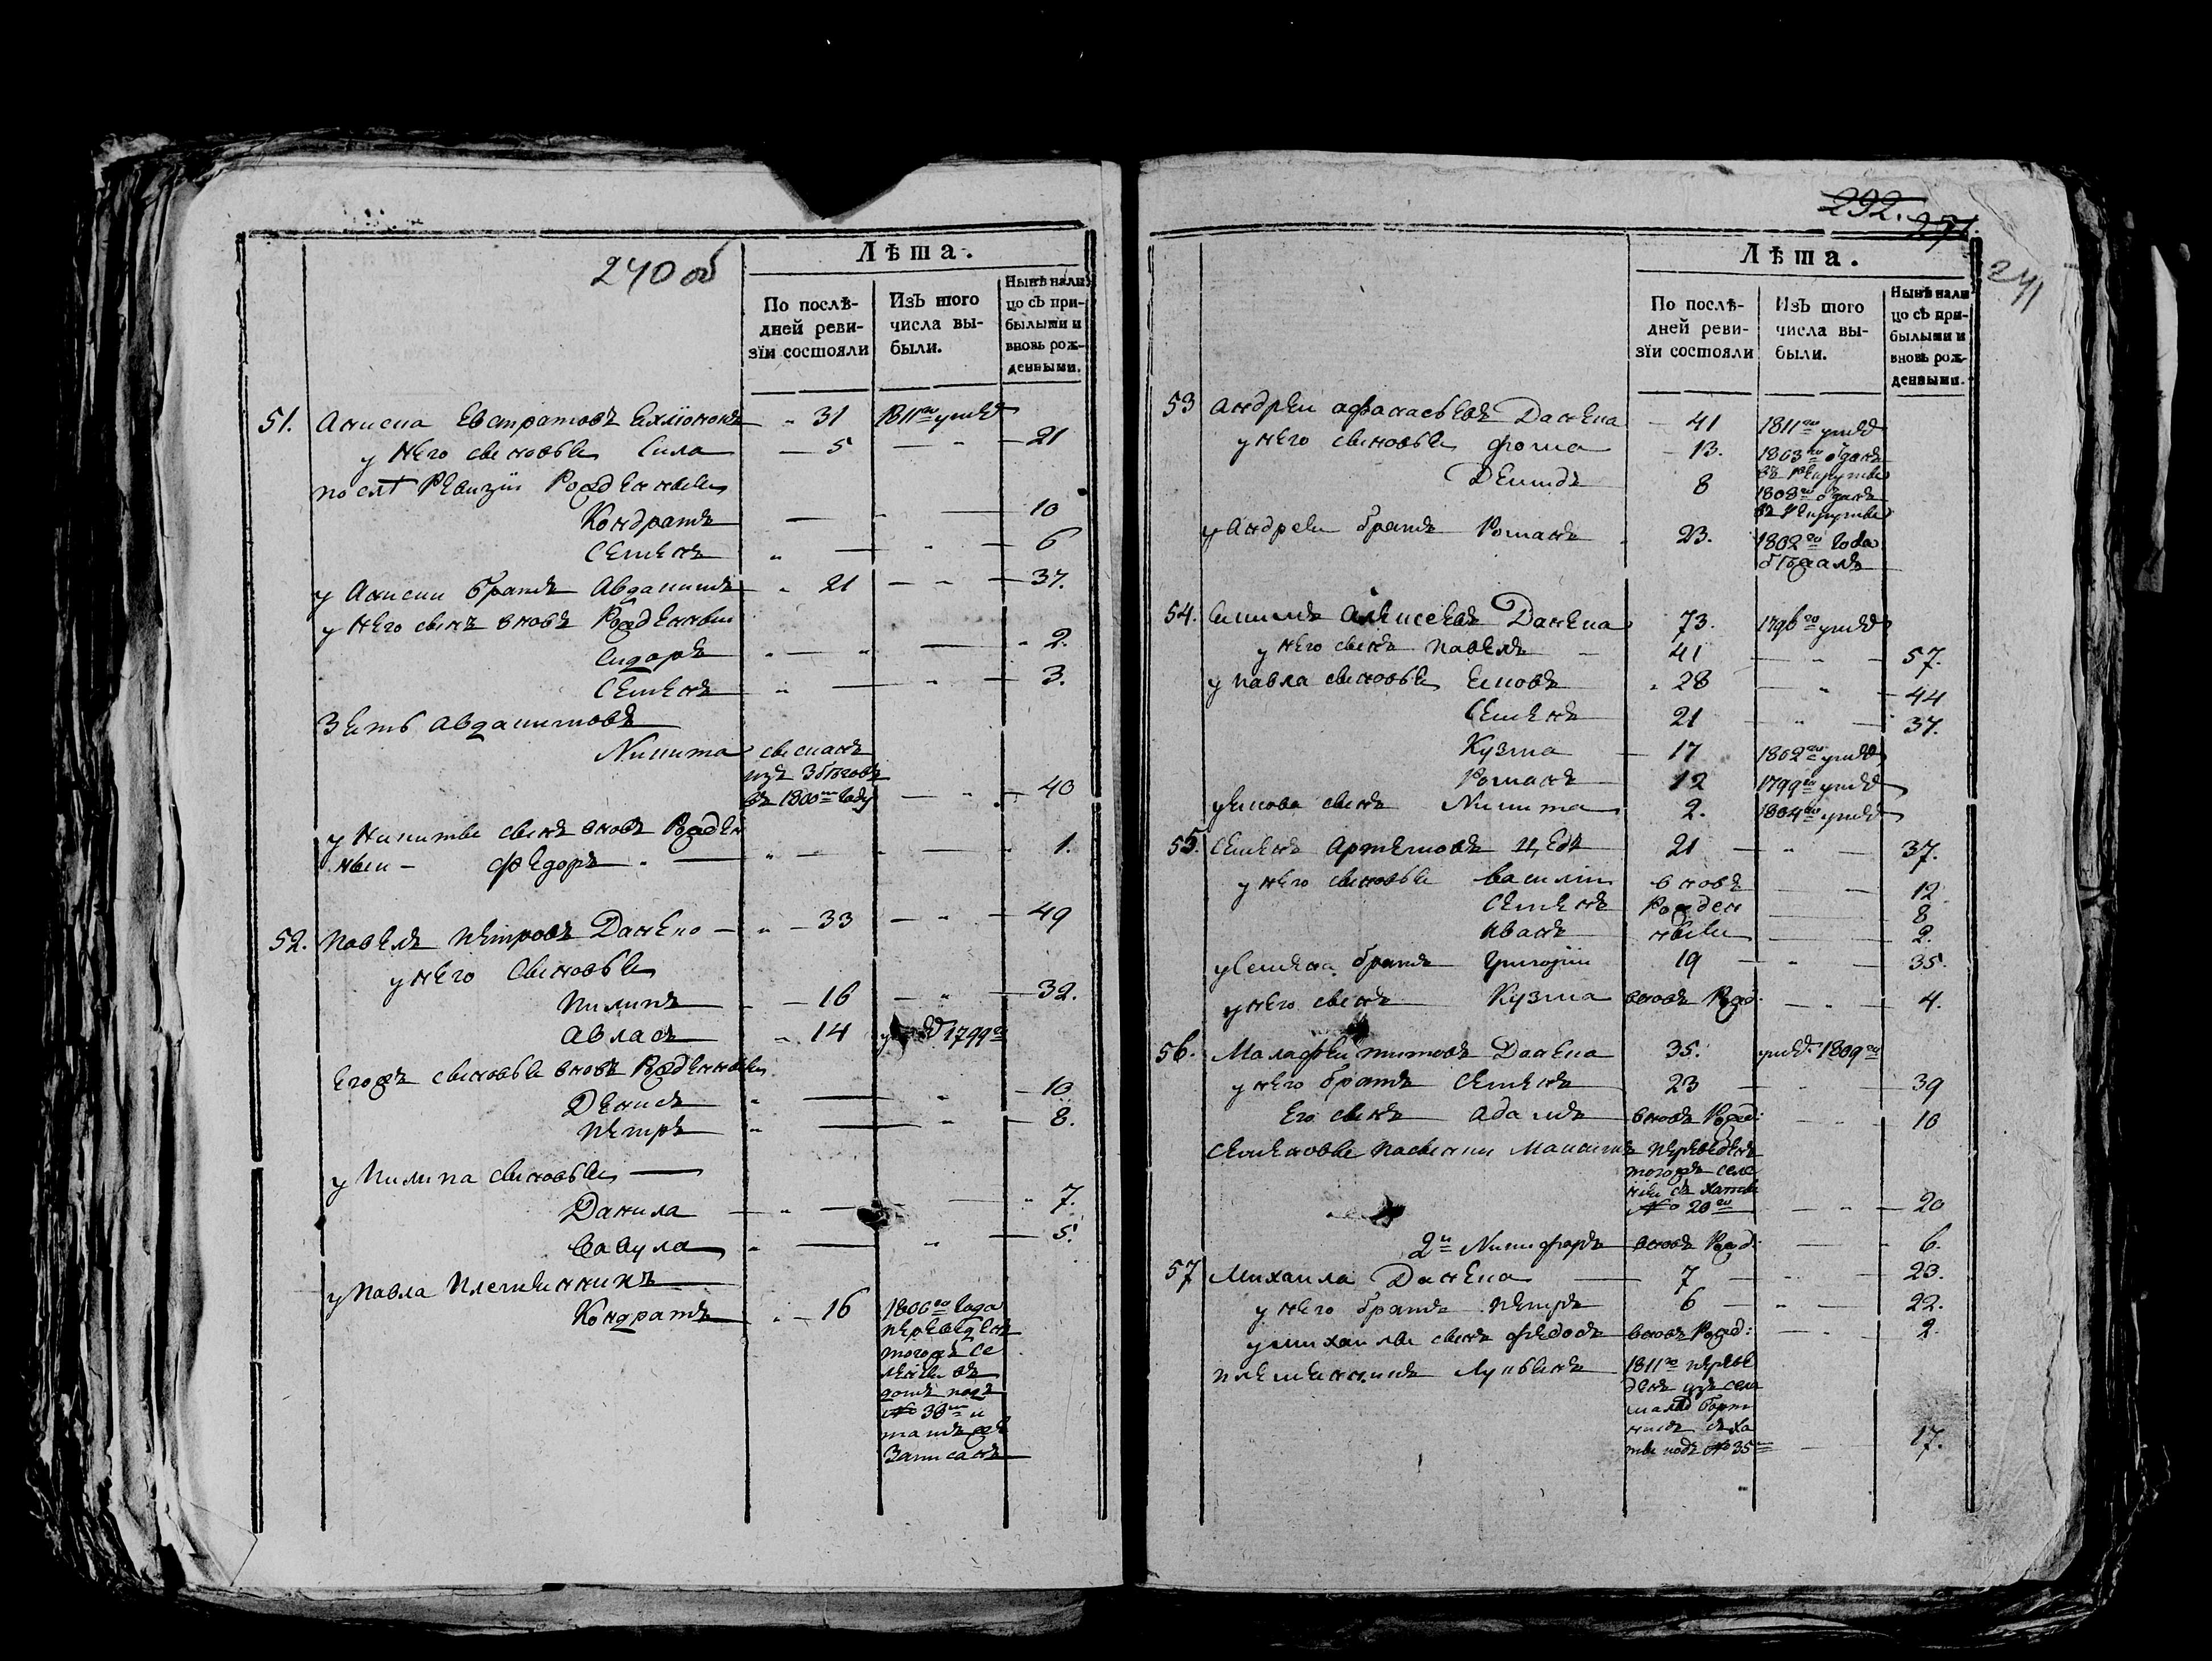 240 об
Лѣта.
По послѣ-
дней реви-
зїи состояли
Изъ того
числа вы-
были.
Нынѣ нали
цо съ при-
былыми и
вновь рож-
денными.
51. Анисиа Евстратовъ 31 1811го умеръ
у него сыновьи Сила 5 21
послѣ Ревизіи Рожденныи
Кондратъ 10
Семенъ 6
у Анисии братъ Авдакимъ 21 37.
у него сынъ вновь Рожденныи
Сидоръ 2.
Семенъ 3.
Зять Авдакимовъ
Никита сысканъ
изъ Збѣговъ
въ 1800мъ Году 40
у Никиты сынъ вновь Рожден
ныи - Федоръ 1.
52. Павелъ Петровъ Данено 33 49
у него Сыновьи
Пилипъ 16 32.
Авласъ 14 1799го
Егожъ сыновьи вновь Рожденныи
Денисъ 10
Петръ 8.
у Пилипа сыновьи
Данила 7.
Вавула 5.
у Павла Племянникъ
Кондратъ 16 1800го Года
переведенъ
тогожъ Се
лении въ
домъ подъ
№ 38мъ и
тамъ же
Записанъ
292. 271.
241
Лѣта.
По послѣ-
дней реви-
зїи состояли
Изъ того
числа вы-
были.
Нынѣ нали
цо съ при-
былыми и
вновь рож-
денными.
53 Андреи Афанасьевъ Данека 41 1811го умеръ
у него сыновьи Фома 13. 1803го отданъ
въ Рекруты
Демидъ 8 1808го отданъ
въ Рекруты
у Андреи братъ Романъ 23. 1802го Года
бѣжалъ
54. Алексеевъ Данека 73. 1796го умеръ
у него сынъ Павелъ 41 57.
у Павла сыновьи Еиовъ 28 44
Семенъ 21 37.
Кузма 17 1802го умеръ
Романъ 12 1799го умеръ
у Еиова сынъ Никита 2. 1804го умеръ
55. Семенъ Артемовъ 21 37.
у него сыновьи Василіи вновь 12
Семенъ Рожден 8
Иванъ ныи 2.
у Семена братъ Григоріи 19 35.
у него сынъ Кузма вновь Рожд: 4.
56. Малафеи Титовъ Данека 35. умеръ 1809го
у него братъ Семенъ 23 39
Его сынъ Адамъ вновь Рожд: 10
Семеновы пасынки Максимъ переведенъ
тогожъ селе
нии съ хаты
№ 20го 20
2й Никифоръ вновь Рожд: 6.
57 Михаила Данека 7 23.
у него братъ Петръ 6 22.
у Михаилы сынъ Федосъ вновь Рожд: 2.
племянникъ Лукьянъ 1811го переве
денъ изъ села
малѣ Борт
никъ съ ха
ты подъ № 35мъ 17.